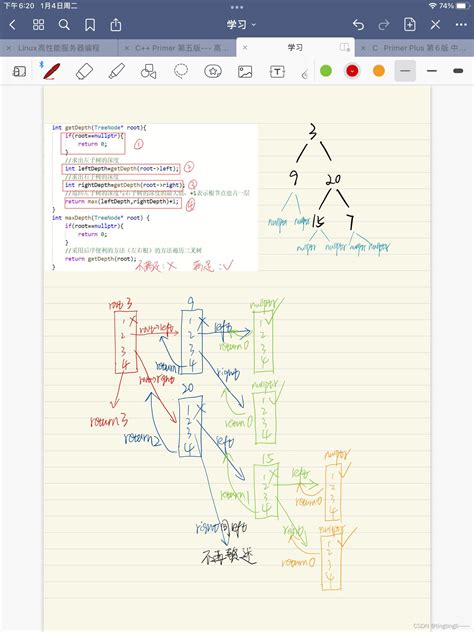 下午6:20 1月4日周二
74%
学习
Linux高性能服务器编程
C++ Primer 第五版--- 高...
学习
C Primer Plus 第6版 中...
int getDepth(TreeNode* root){
if(root==nullptr){
return 0;
}
①
//求出左子树的深度
int leftDepth=getDepth(root->left);
②
//求出右子树的深度
int rightDepth=getDepth(root->right);
③
return max(leftDepth,rightDepth)+1;
④
}
int maxDepth(TreeNode* root){
if(root==nullptr){
return 0;
}
//采用后序便利的方法（左右根）的方法遍历二叉树
return getDepth(root);
}
不满足:× 满足:✓
3
9 20
nullptr nullptr 15 7
nullptr nullptr nullptr nullptr
root 3
1 ×
2
3
4
root->left
root->right
return 3
9
1 ×
2
3
4
left
return 1
right
nullptr
1 ✓
2
3
4
return 0
nullptr
1 ✓
2
3
4
return 0
20
1 ×
2
3
4
return 2
left
right同left
不再赘述
15
1 ×
2
3
4
return 1
left
right
nullptr
1 ✓
2
3
4
return 0
nullptr
1 ✓
2
3
4
return 0